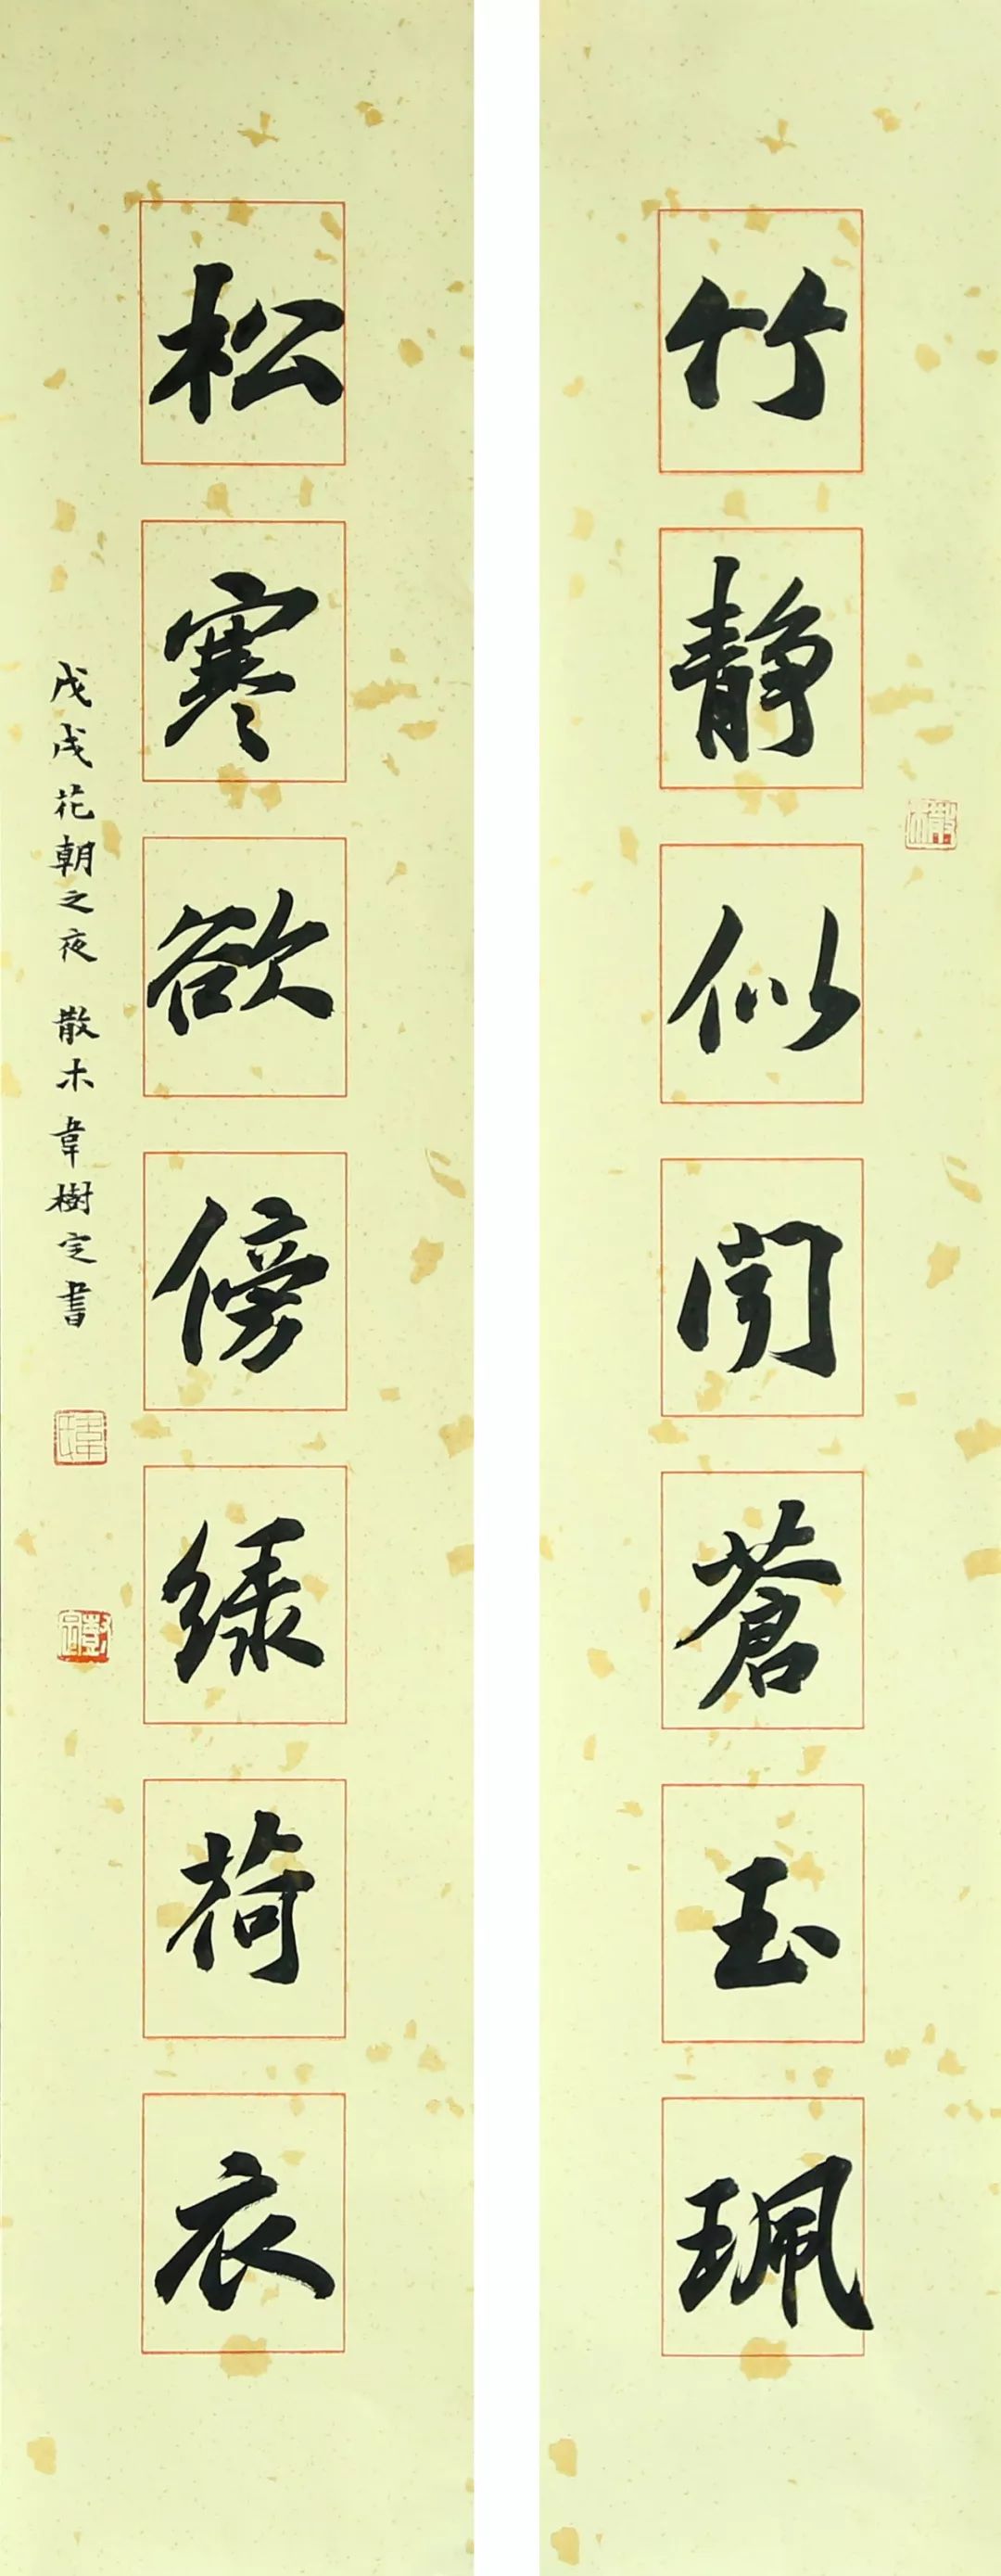 竹静似闻苍玉珮
松寒欲傍绿荷衣
戊戌花朝之夜 散木韋樹定書